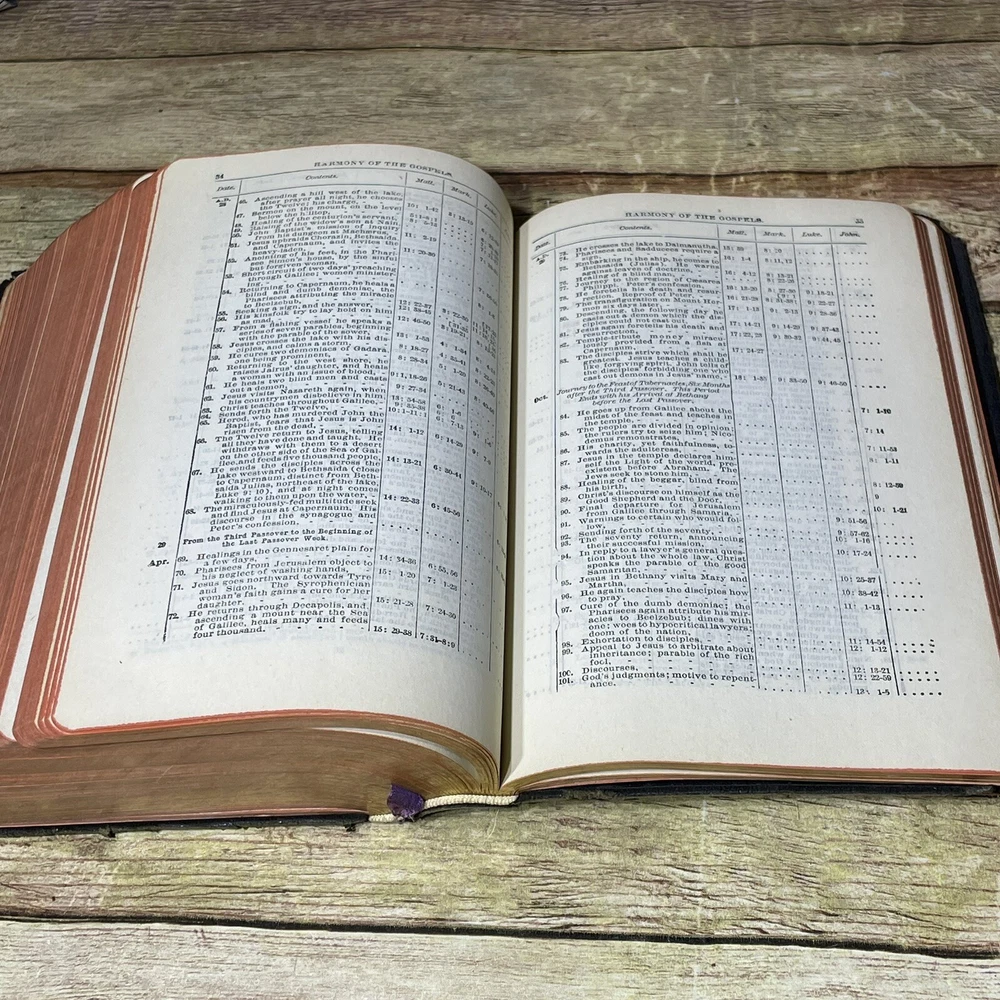 34
HARMONY OF THE GOSPELS.
Date. Contents. Matt. Mark.
A.D. 28
46. Ascending a hill west of the lake,
after prayer all night, he chooses
the Twelve; his charge,
Sermon on the mount, on the level
below the hilltop,
Healing of the centurion's servant,
Raising of the widow's son at Nain,
John Baptist's mission of inquiry
from his dungeon at Machaerus,
Jesus upbraids Chorazin, Bethsaida,
and Capernaum, and invites the
heavy laden,
Anointing of his feet, in the Phari-
see Simon's house, by the sinful
but forgiven woman,
Short circuit of two days' preaching
through Galilee; women minister-
ing,
Returning to Capernaum, he heals a
blind and dumb demoniac, the
Pharisees attributing the miracle
to Beelzebub,
Seeking a sign, and the answer, 12: 22-37
His kinsfolk try to lay hold on him
as mad, 12: 46-50
From a fishing vessel he speaks a
series of seven parables, beginning
with the parable of the sower,
Jesus crosses the lake with his dis-
ciples, and calms a storm,
He cures two demoniacs of Gadara,
one being prominent,
Returning to the west shore, he
raises Jairus' daughter, and heals
a woman with an issue of blood,
61. He heals two blind men and casts
out a demon,
62. Jesus visits Nazareth again, when
his countrymen disbelieve in him,
63. Christ teaches throughout Galilee,
64. Sends forth the Twelve,
65. Herod, who has murdered John the
Baptist, fears that Jesus is John
risen from the dead, 14: 1-12
66. The Twelve return to Jesus, telling
all they have done and taught. He
withdraws with them to a desert
on the other side of the Sea of Gal-
ilee, and feeds five thousand people, 14: 13-21 6: 30-44
67. He sends the disciples across the
lake westward to Bethsaida (close
to Capernaum, distinct from Beth-
saida Julias, northeast of the lake,
Luke 9: 10), and at night comes
walking to them upon the water, 14: 22-33 6: 45-56
68. The miraculously-fed multitude seek
and find Jesus at Capernaum. His
discourse in the synagogue and
Peter's confession.
29 From the Third Passover to the Beginning of
the Last Passover Week.
Apr. 69. Healings in the Gennesaret plain for
a few days, 14: 34-36 6: 55, 56
70. Pharisees from Jerusalem object to
his neglect of washing hands, 15: 1-20 7: 1-23
71. Jesus goes northward towards Tyre
and Sidon. The Syrophenician
woman's faith gains a cure for her
daughter, 15: 21-28 7: 24-30
72. He returns through Decapolis, and,
ascending a mount near the Sea
of Galilee, heals many and feeds
four thousand. 15: 29-38 7: 31-8: 9
HARMONY OF THE GOSPELS. 35
Date. Contents. Matt. Mark. Luke. John.
A.D. 29
73. He crosses the lake to Dalmanutha, 15: 39 8: 10
74. Pharisees and Sadducees require a
sign, 16: 1-4 8: 11, 12
75. Embarking in the ship, he comes to
Bethsaida (Julias). He warns
against leaven of doctrines, 16: 4-12
76. Healing of a blind man,
77. Journey to the region of Cæsarea
Philippi. Peter's confession,
78. He foretells his death and resur-
rection. Reproof of Peter,
79. The transfiguration on Mount Her-
mon six days later, 17: 1-13 9: 2-13
80. Descending, the following day he
casts out a demon which the dis-
ciples could not cast out, 17: 14-21 9: 14-29 9: 37-43
81. Jesus again foretells his death and
resurrection, 17: 22, 23 9: 30-32
82. Temple-tribute money miracu-
lously provided from a fish at
Capernaum, 17: 24-27
83. The disciples strive which shall be
greatest. Jesus teaches a child-
like, forgiving spirit. John tells of
the disciples' forbidding one who
cast out demons in Jesus' name, 18: 1-35 9: 33-50 9: 46-50
Journey to the Feast of Tabernacles, Six Months
after the Third Passover. This Period
Ends with his Arrival at Bethany
before the Last Passover.
Oct.
84. He goes up from Galilee about the
midst of the feast and teaches in
the temple, 7: 1-10
85. The people are divided in opinion,
the rulers try to seize him; Nico-
demus remonstrates, 7: 14
86. His charity, yet faithfulness, to-
wards the adulteress, 7: 11-53
87. Jesus in the temple declares him-
self the Light of the world, pre-
existent before Abraham. The
Jews seek to stone him, 8: 12-59
88. Healing of the beggar, blind from
his birth, 9
89. Christ's discourse on himself as the
Good Shepherd and the Door, 10: 1-21
90. Final departure for Jerusalem
from Galilee through Samaria, 9: 51-56
91. Warnings to certain who would fol-
low, 9: 57-62
92. Sending forth of the seventy,
93. The seventy return, announcing
their successful mission, 10: 17-24
94. In reply to a lawyer's general ques-
tion about the whole law, Christ
speaks the parable of the good
Samaritan, 10: 25-37
95. Jesus in Bethany visits Mary and
Martha, 10: 38-42
96. He again teaches the disciples how
to pray, 11: 1-13
97. Cure of the dumb demoniac; the
Pharisees again attribute his mir-
acles to Beelzebub; dines with
one; woes to hypocritical lawyers;
doom of the nation, 11: 14-54
98. Exhortation to disciples, 12: 1-12
99. Appeal to Jesus to arbitrate about
inheritance; parable of the rich
fool, 12: 13-21
100. Discourses, 12: 22-59
101. God's judgments; motive to repent-
ance. 13: 1-5